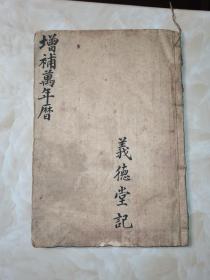 增補萬年曆
義德堂記